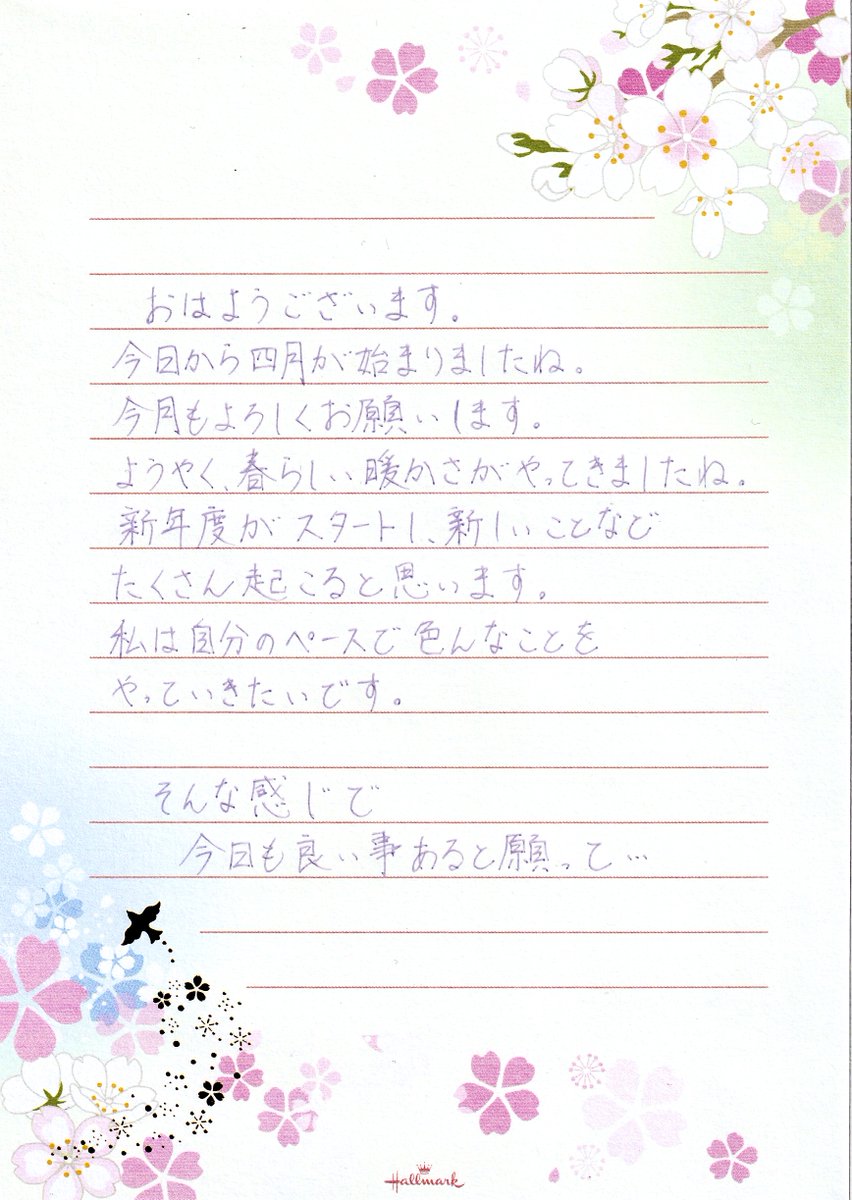 おはようございます。
今日から四月が始まりましたね。
今月もよろしくお願いします。
ようやく、春らしい暖かさがやってきましたね。
新年度がスタートし、新しいことなど
たくさん起こると思います。
私は自分のペースで色んなことを
やっていきたいです。
そんな感じで
今日も良い事あると願って…
Hallmark